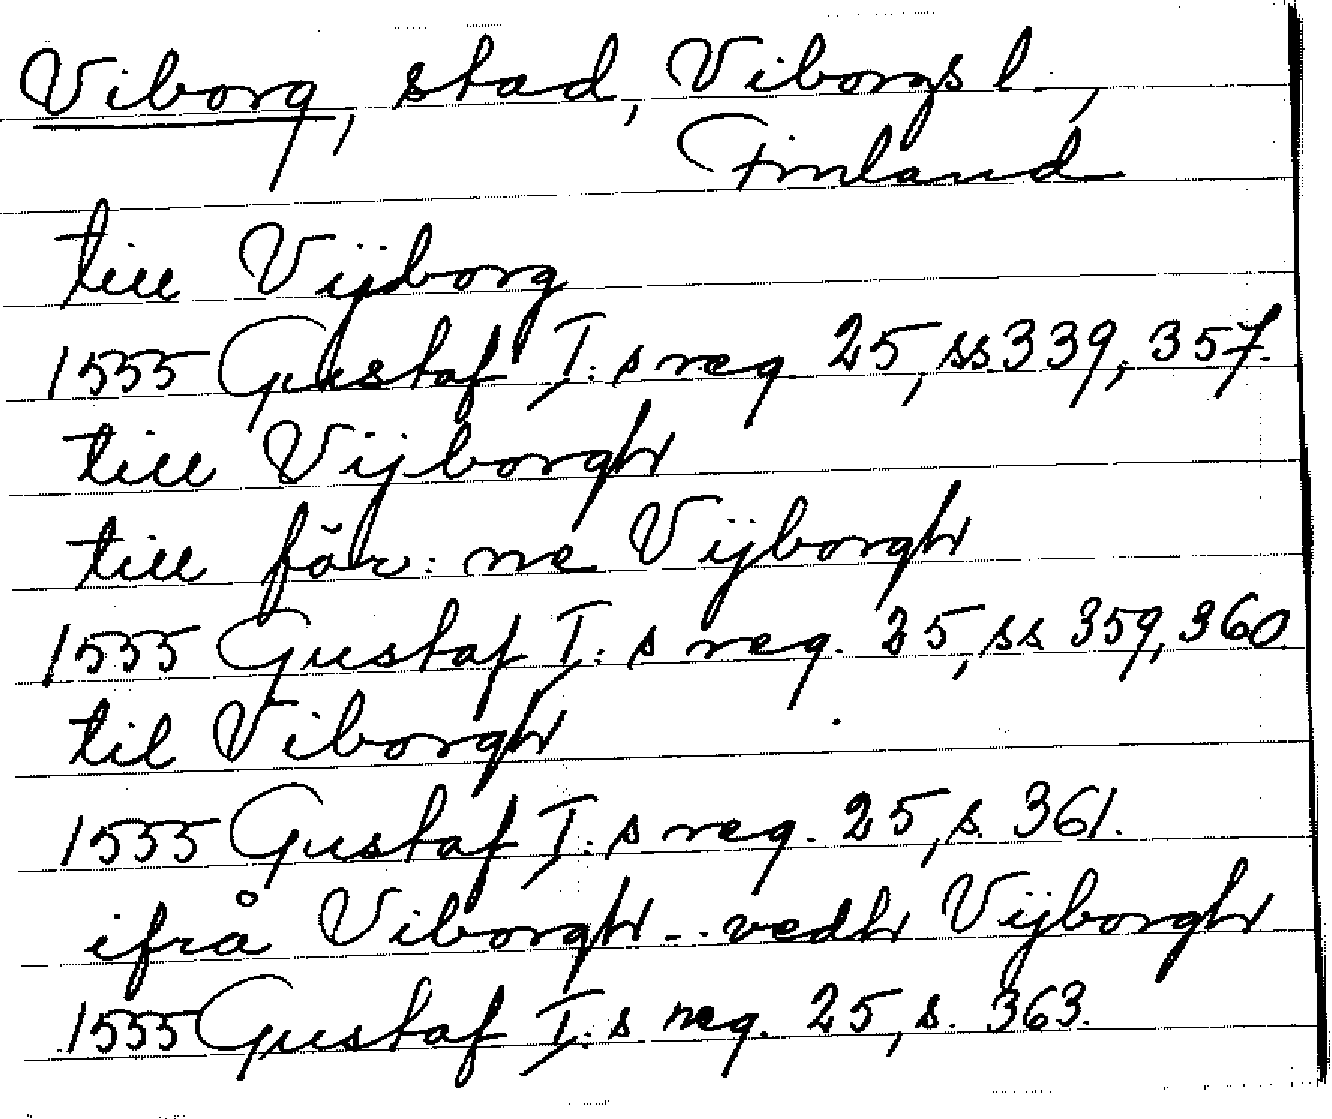 Viborg, stad, Viborgs l,
Finland
till Vijborg
1555 Gustaf I:s reg 25, ss 339, 357.
till Vijborgh
till för: ne Vijborgh
1555 Gustaf I:s reg. 25, ss 359, 360.
til Viborgh
1555 Gustaf I:s reg. 25, s. 361.
ifrå Viborgh - . . vedh Vijborgh
1555 Gustaf I:s reg. 25, s. 363.